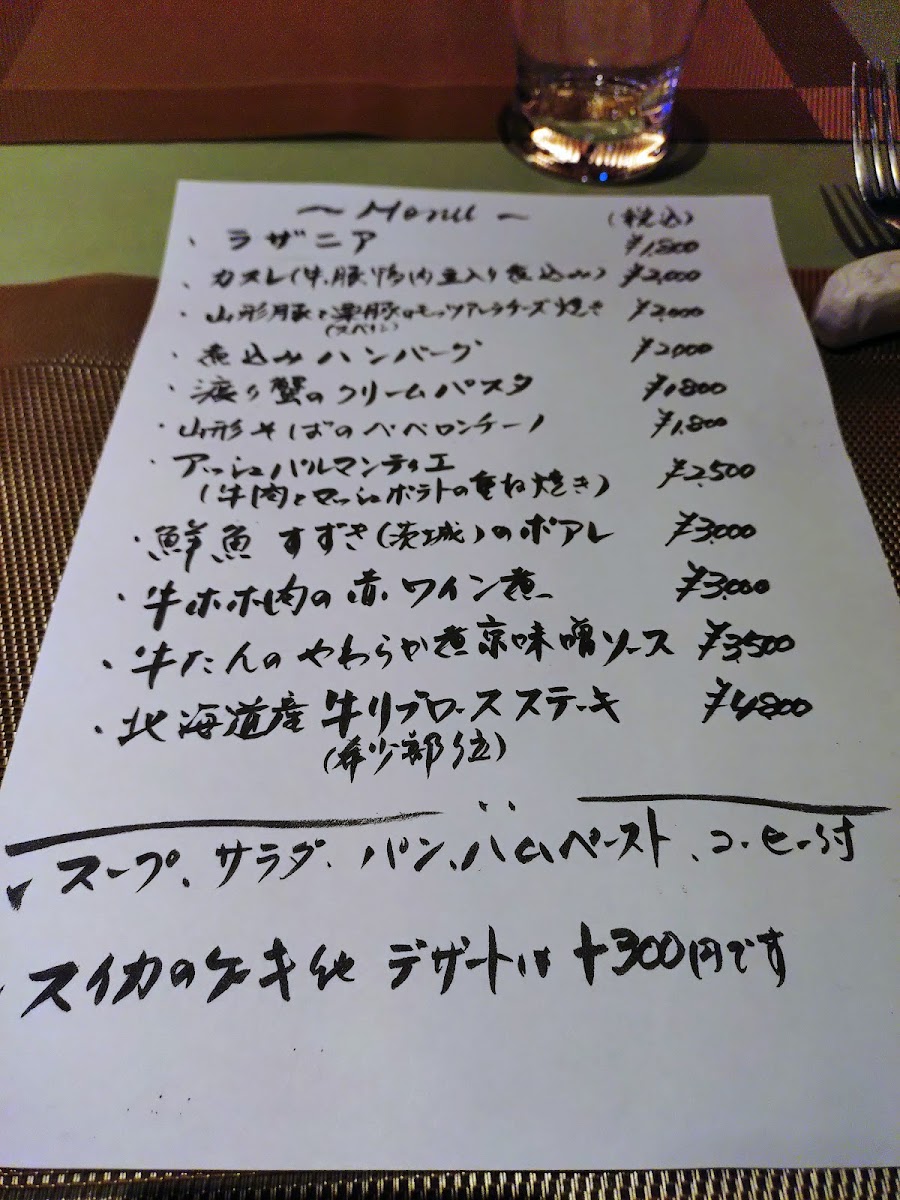 ～ Menu ～ (税込)
・ラザニア ¥1,800
・カスレ(牛、豚、鴨肉豆入り煮込み) ¥2,000
・山形豚と栗豚のモッツアレラチーズ焼き ¥2,000
(スペイン)
・煮込みハンバーグ ¥2000
・渡り蟹のクリームパスタ ¥1,800
・山形そばのペペロンチーノ ¥1,800
・アッシュパルマンティエ ¥2,500
(牛肉とマッシュポテトの重ね焼き)
・鮮魚 すずき(茨城)のポアレ ¥3,000
・牛ホホ肉の赤ワイン煮 ¥3,000
・牛たんのやわらか煮京味噌ソース ¥3,500
・北海道産 牛リブロースステーキ ¥4,800
(希少部位)
スープ、サラダ、パン、ハムペースト、コーヒー付
スイカのケーキ他 デザートは +300円です